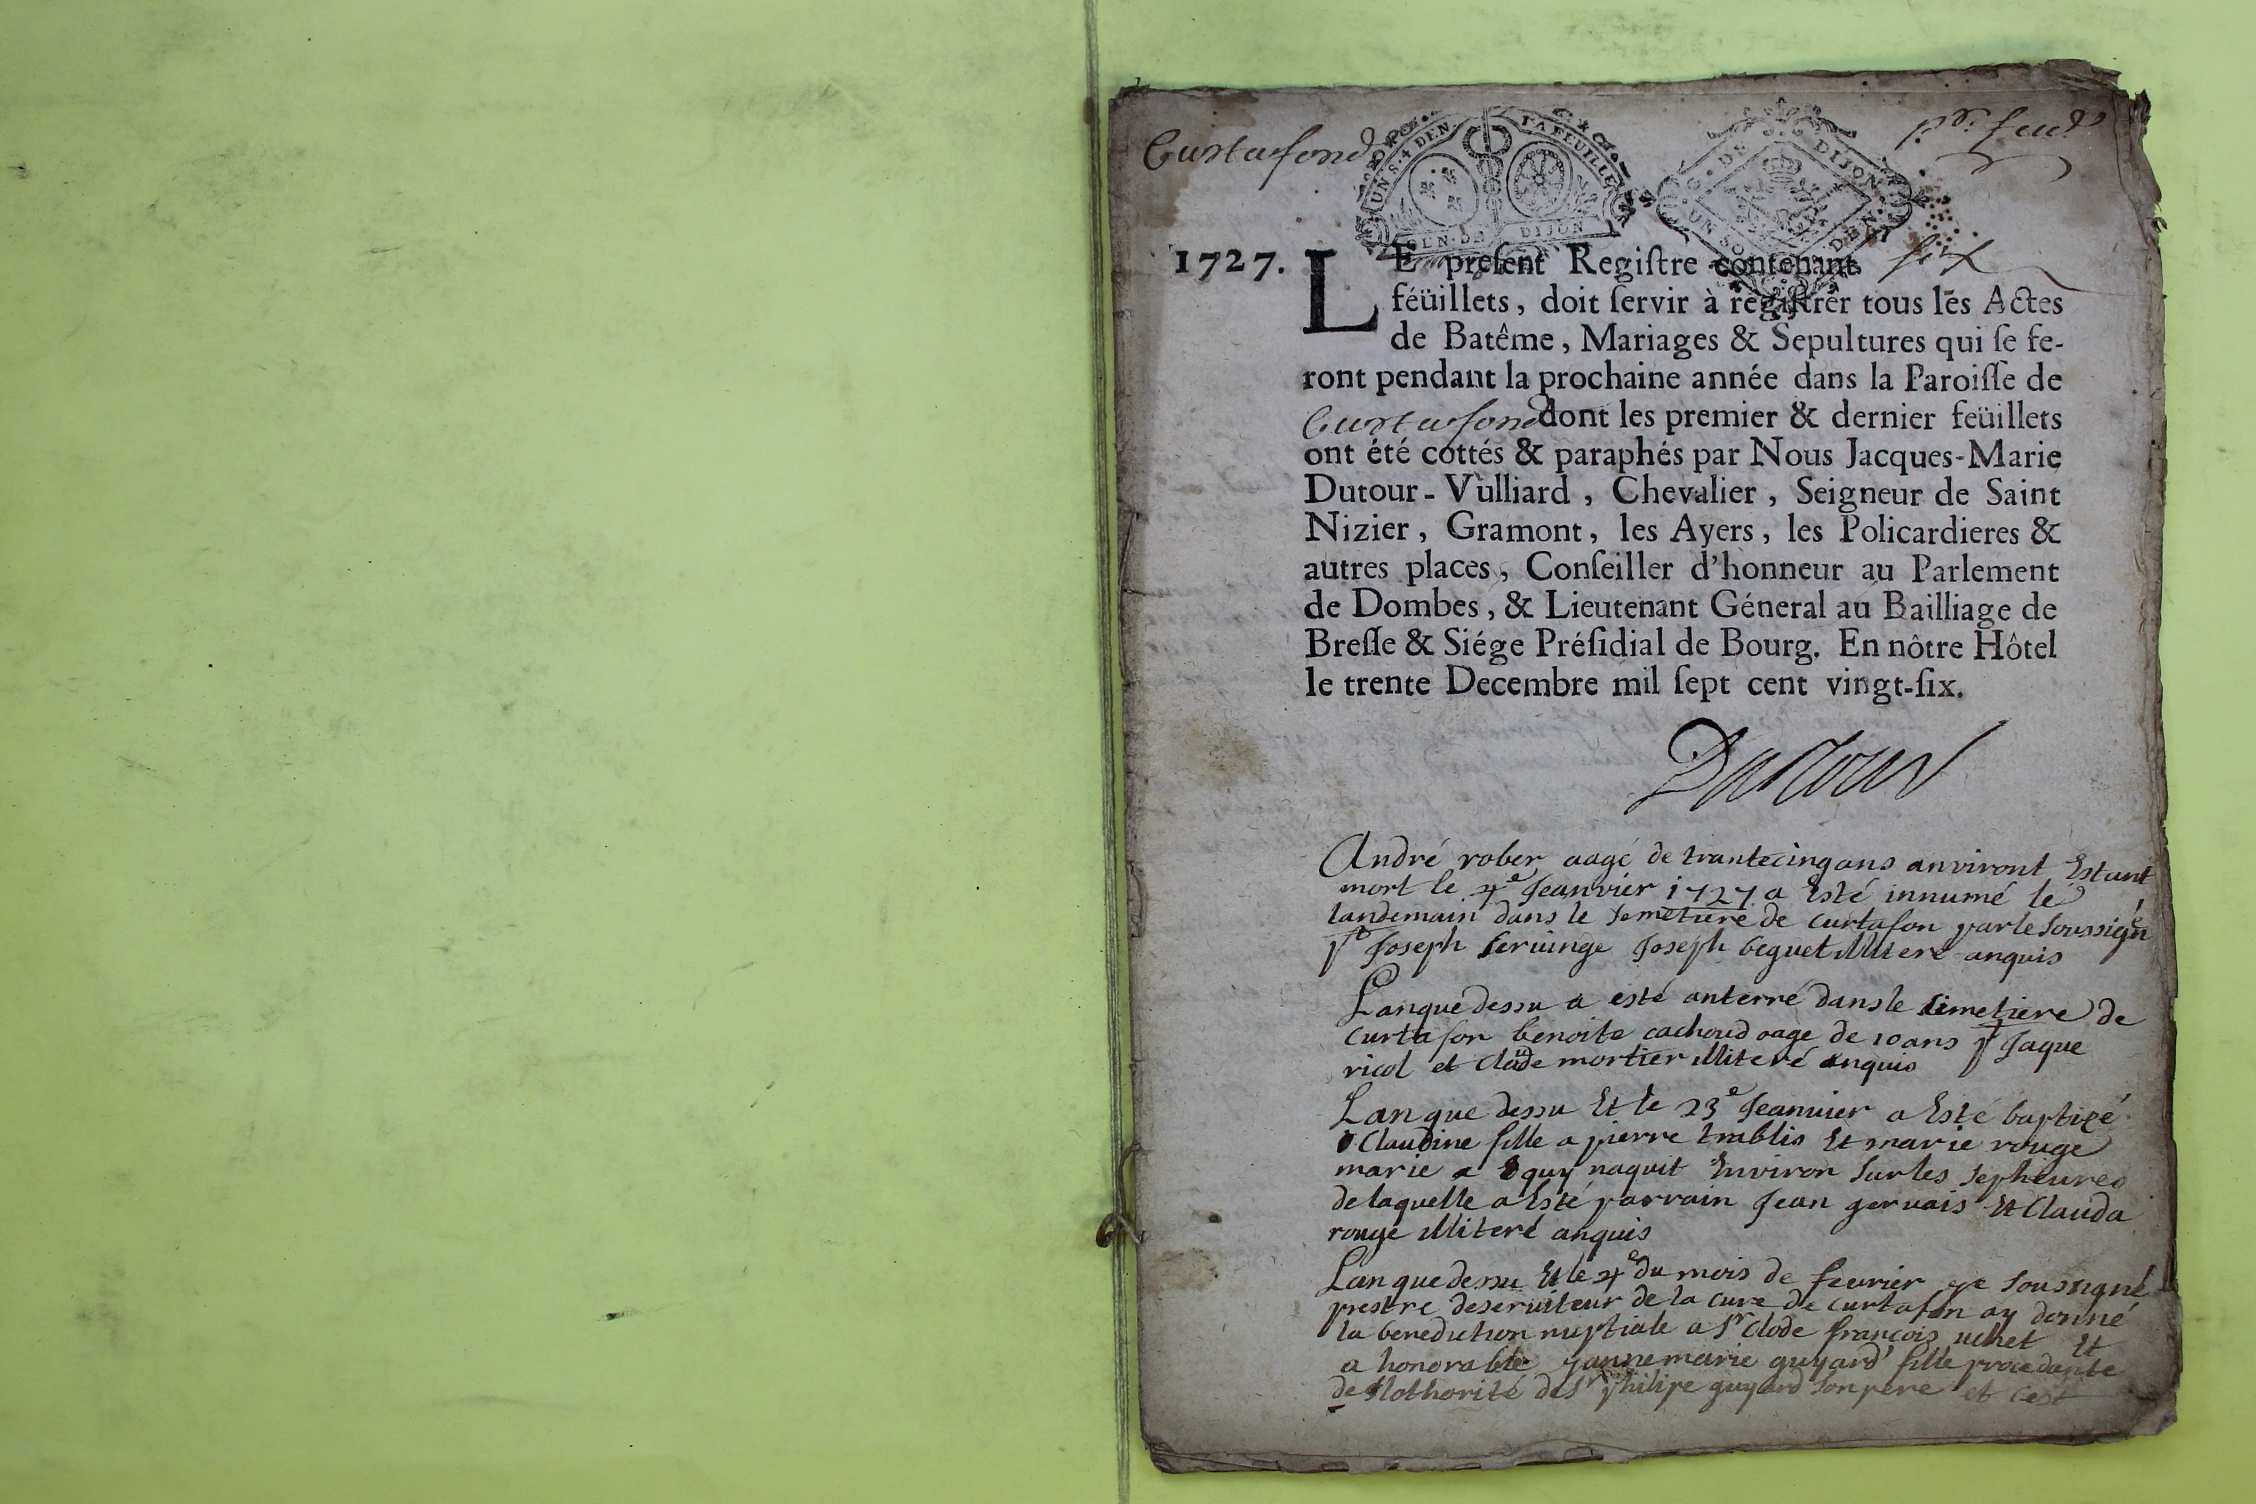 Curtafond
UN S. 4 DEN. LA FEUILLE
GEN. DE DIJON
G. DE DIJON
UN SOL DEN.
1727.
LE preſent Regiſtre contenant six
féüillets, doit ſervir à regiſtrer tous les Actes
de Batême, Mariages & Sepultures qui ſe fe-
ront pendant la prochaine année dans la Paroiſſe de
Curtafond dont les premier & dernier feüillets
ont été cottés & paraphés par Nous Jacques-Marie
Dutour-Vulliard, Chevalier, Seigneur de Saint
Nizier, Gramont, les Ayers, les Policardieres &
autres places, Conſeiller d'honneur au Parlement
de Dombes, & Lieutenant Géneral au Bailliage de
Breſſe & Siége Préſidial de Bourg. En nôtre Hôtel
le trente Decembre mil ſept cent vingt-ſix.
Dutour
André rober aagé de trantecinq ans anviront Estant
mort le 4e Jeanvier 1727 a Esté innumé le
landemain dans le semetiere de curtafon par le soussigné
pt Joseph feruinge Joseph beguet illiteré anquis
Lanquedessu a esté anterré dans le simetiere de
curtafon benoite cachoud aage de 10 ans pt Jaque
ricol et claude mortier illiteré anquis
Lanque dessu Et le 23e Jeanuier a Esté baptizé
Claudine fille a pierre trablis Et marie rouge
marie a quy naquit Environ sur les sepheures
de laquelle a Esté parrain Jean geruais Et Clauda
rouge illiteré anquis
Lanquedessu Et le 4e du mois de feurier je sousigné
prestre deseruiteur de la cure de curtafon ay donné
la benediction nuptiale a Sr Clode françois uchet Et
a honorable janne marie guyard fille procedante
de lothorité de Sr philipe guyard son pere et cest